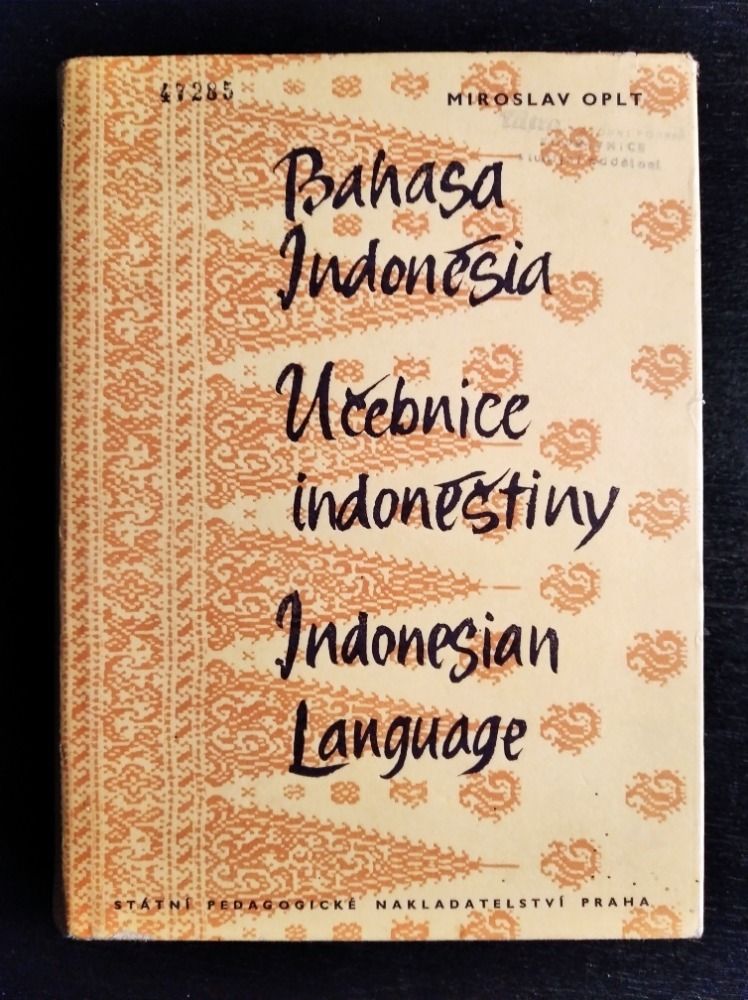 47285
MIROSLAV OPLT
Bahasa
Indonésia
Učebnice
indonéštiny
Indonesian
Language
STÁTNÍ PEDAGOGICKÉ NAKLADATELSTVÍ PRAHA